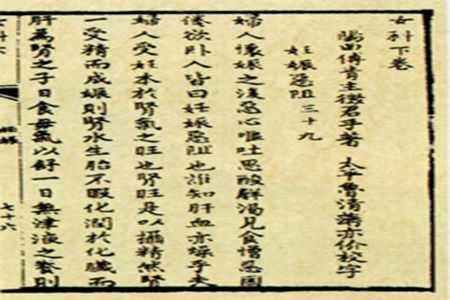 女科下卷
陽曲傅青主徵君手著 太平魯清藩亦价校字
妊娠惡阻 三十九
婦人懷娠之後惡心嘔吐思酸解渴見食憎惡困
倦欲卧人皆曰妊娠惡阻也誰知肝血亦燥乎夫
婦人受妊本於腎氣之旺也腎旺是以攝精然腎
一受精而成娠則腎水生胎不暇化潤於化臟而
肝為腎之子日食母氣以舒一日無津液之養則
七十六